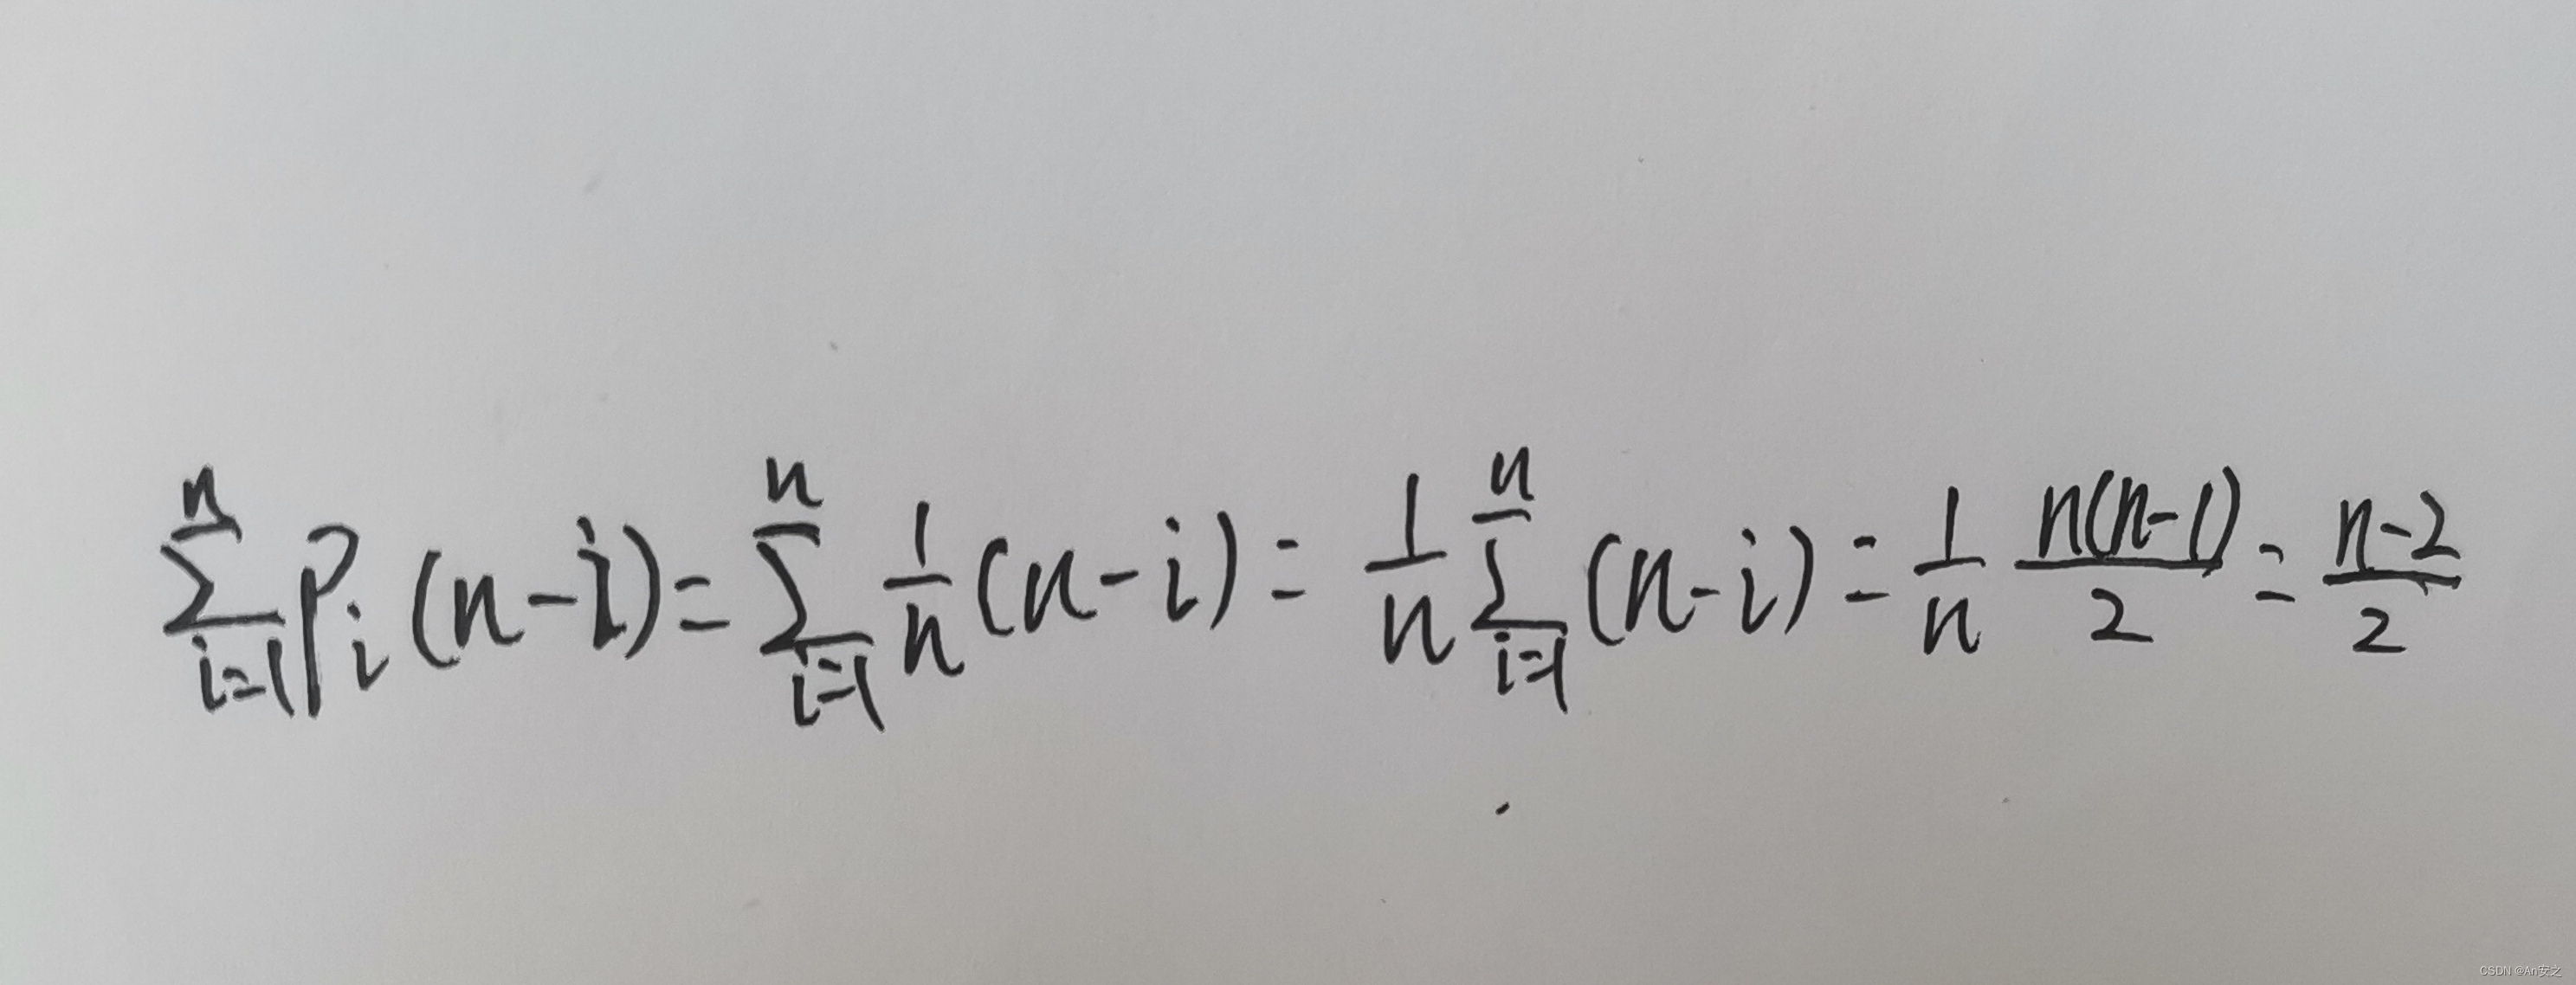 $\sum_{i=1}^{n} P_i (n-i) = \sum_{i=1}^{n} \frac{1}{n} (n-i) = \frac{1}{n} \sum_{i=1}^{n} (n-i) = \frac{1}{n} \frac{n(n-1)}{2} = \frac{n-2}{2}$
CSDN @An安之